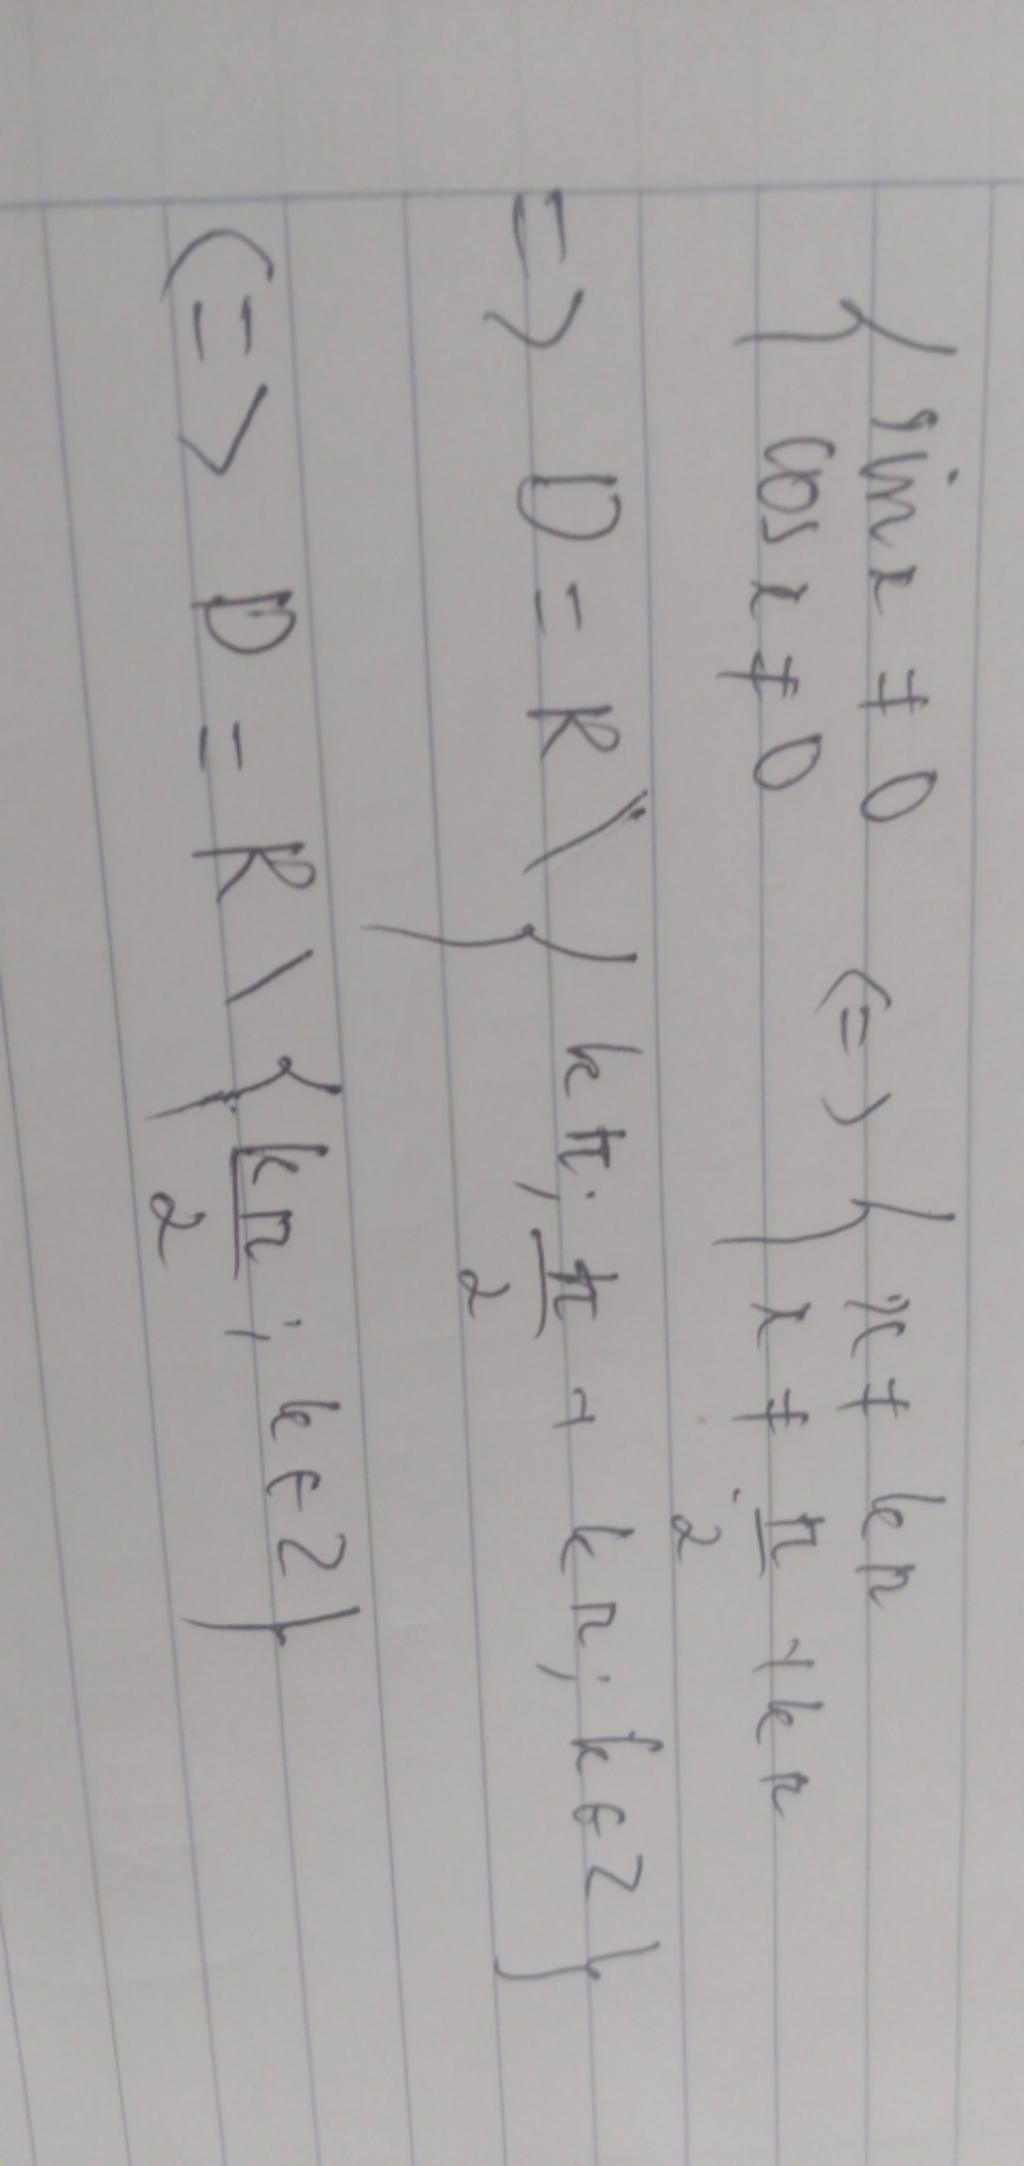 { sin x ≠ 0 <=> { x ≠ kπ
cos x ≠ 0 x ≠ π/2 + kπ
=> D = R \ { kπ; π/2 + kπ; k ∈ Z }
<=> D = R \ { kπ/2; k ∈ Z }